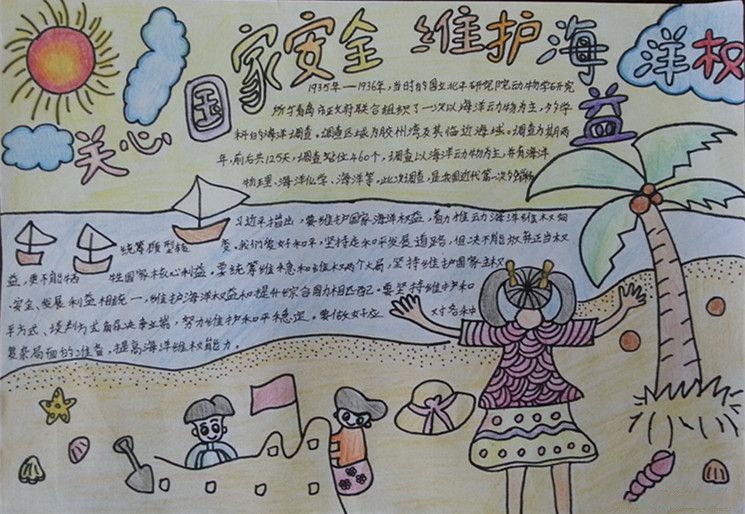 关心国家安全 维护海洋权益
1935年—1936年,当时的国立北平研究院动物学研究
所与青岛市政府联合组织了一次以海洋动物为主,多学
科的海洋调查。调查区域为胶州湾及其临近海域。调查为期两
年,前后共125天,调查站位460个,调查以海洋动物为主,并有海洋
物理、海洋化学、海洋等。此次调查,是我国近代第一次多学科
习近平指出,要维护国家海洋权益,着力推动海洋维权向
统筹兼型转变。我们爱好和平,坚持走和平发展道路,但决不能放弃正当权
益,更不能牺牲国家核心利益。要统筹维稳和维权两个大局,坚持维护国家主权
、安全、发展利益相统一,维护海洋权益和提升综合国力相匹配。要坚持维护和
平方式、谈判方式解决争端,努力维护和平稳定。要做好应对各种
复杂局面的准备,提高海洋维权能力。